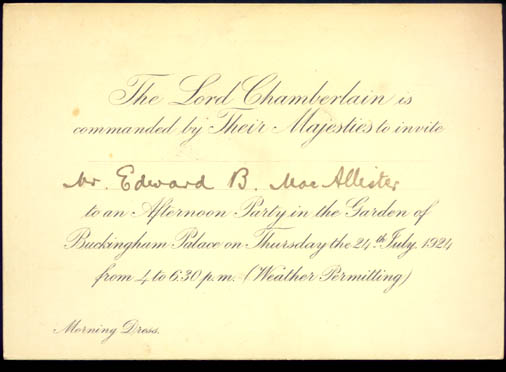 The Lord Chamberlain is
commanded by Their Majesties to invite
Mr. Edward B. MacAllister
to an Afternoon Party in the Garden of
Buckingham Palace on Thursday the 24th July, 1924
from 4 to 6.30 p.m. (Weather Permitting)
Morning Dress.